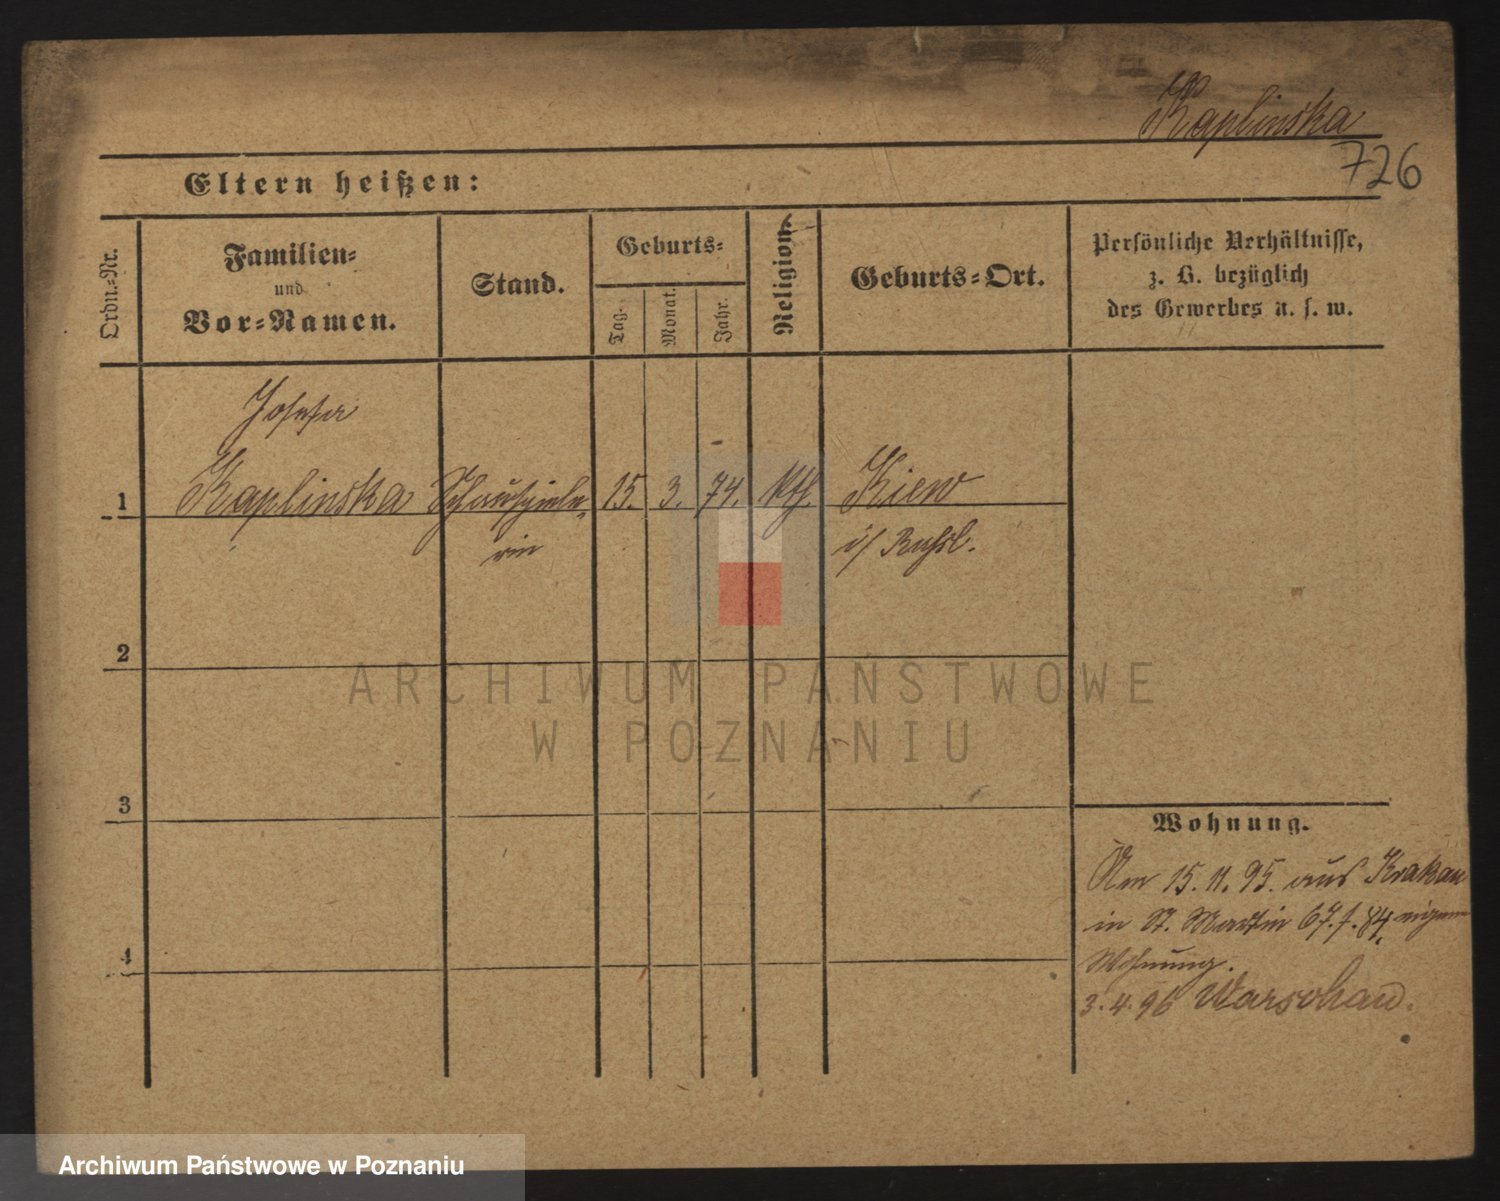 Kaplinska
726
Eltern heißen:
Ordn.-Nr.
Familien-
und
Vor-Namen.
Stand.
Geburts-
Tag.
Monat.
Jahr.
Religion.
Geburts-Ort.
Persönliche Verhältnisse,
z. B. bezüglich
des Gewerbes u. s. w.
Josefa
1 Kaplinska Schauspiele- 15. 3. 74. kth. Kiew
rin i/ Rußl.
2
3
4
Wohnung.
Am 15.11.95. aus Krakau
in St. Martin 67. b. 84. eigene
Wohnung.
3.4.96 Warschau.
ARCHIWUM PAŃSTWOWE
W POZNANIU
Archiwum Państwowe w Poznaniu